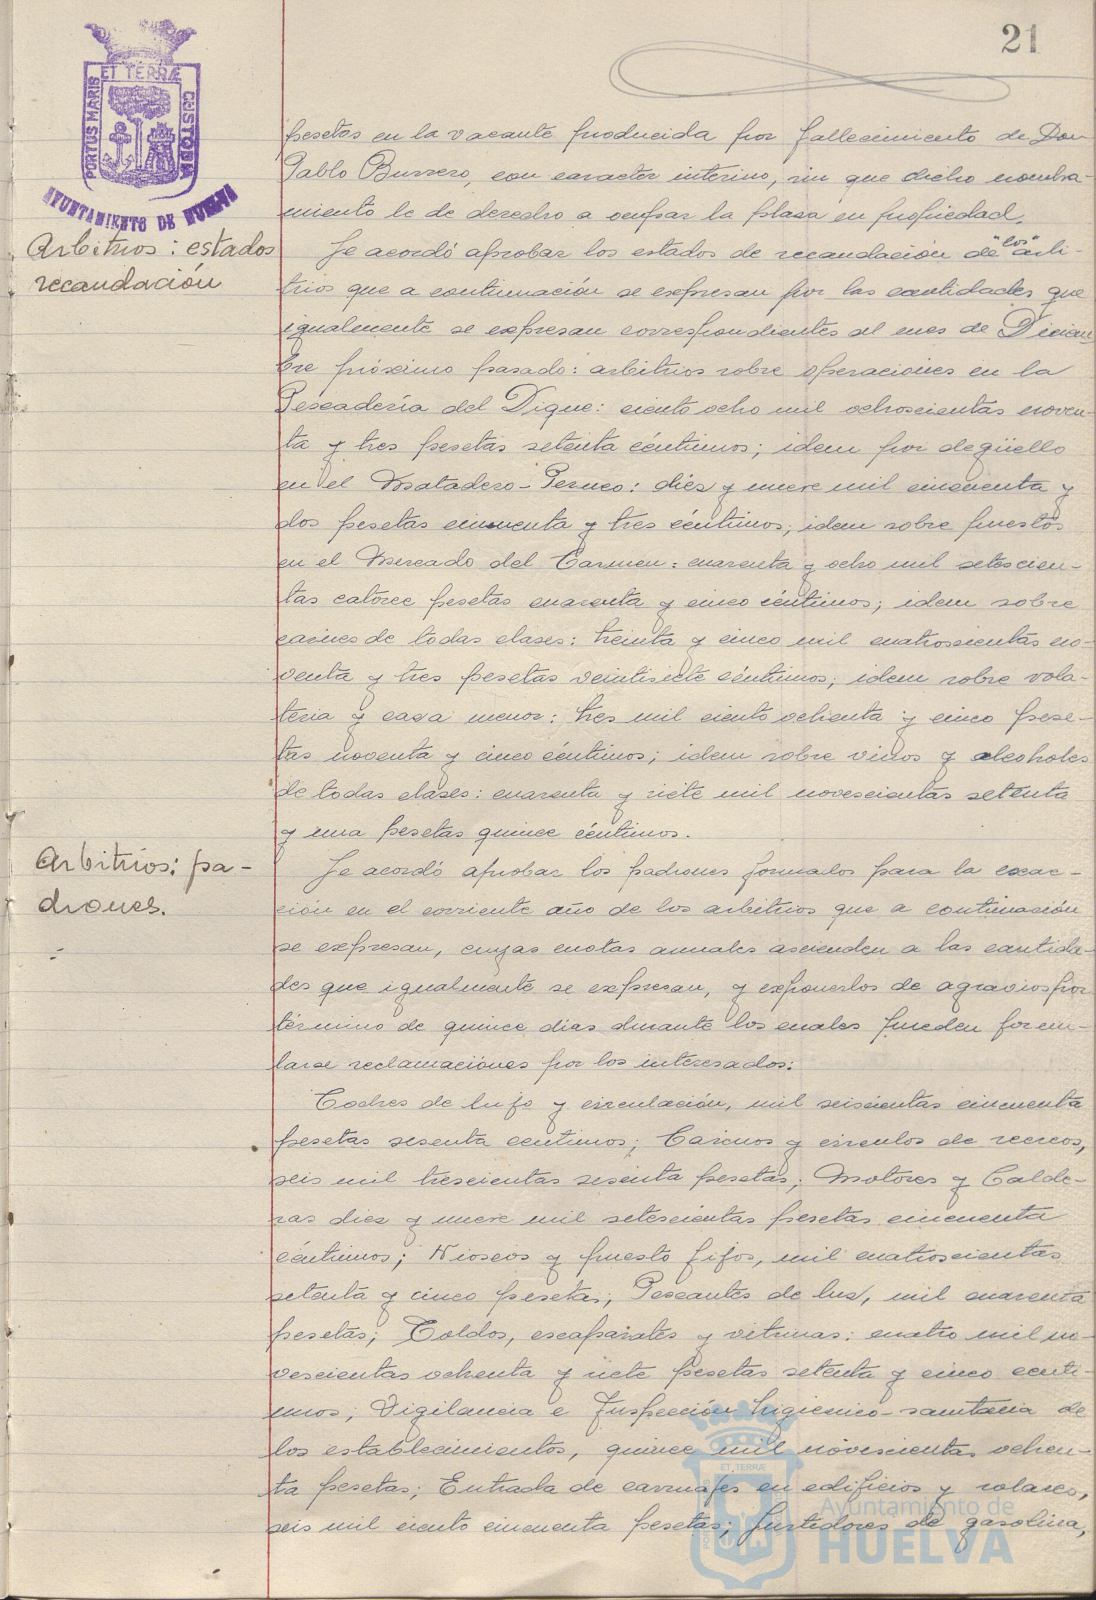 21
PORTUS MARIS ET TERRÆ CUSTODIA
AYUNTAMIENTO DE HUELVA
pesetas en la vacante producida por fallecimiento de Don
Pablo Burrero, con caracter interino, sin que dicho nombra-
miento le de derecho a ocupar la plaza en propiedad.
Arbitrios: estados
recaudación
Se acordó aprobar los estados de recaudación de "los" arbi-
trios que a continuación se expresan por las cantidades que
igualmente se expresan correspondientes al mes de Diciem-
bre próximo pasado: arbitrios sobre operaciones en la
Pescadería del Dique: ciento ocho mil ochoscientas noven-
ta y tres pesetas setenta céntimos; idem por degüello
en el Matadero-Perneo: diez y nueve mil cincuenta y
dos pesetas cincuenta y tres céntimos; idem sobre puestos
en el Mercado del Carmen: cuarenta y ocho mil setescien-
tas catorce pesetas cuarenta y cinco céntimos; idem sobre
carnes de todas clases: treinta y cinco mil cuatroscientas no-
venta y tres pesetas veintisiete céntimos; idem sobre vola-
teria y caza menor: tres mil ciento ochenta y cinco pese-
tas noventa y cinco céntimos; idem sobre vinos y alcoholes
de todas clases: cuarenta y siete mil novescientas setenta
y una pesetas quince céntimos.
Arbitrios: pa-
drones.
Se acordó aprobar los padrones formados para la exac-
ción en el corriente año de los arbitrios que a continuación
se expresan, cuyas cuotas anuales ascienden a las cantida-
des que igualmente se expresan, y exponerlos de agravios por
término de quince dias durante los cuales pueden formu-
larse reclamaciónes por los interesados:
Coches de lujo y circulación, mil seiscientas cincuenta
pesetas sesenta centimos; Casinos y circulos de recreos,
seis mil trescientas sesenta pesetas; Motores y Calde-
ras diez y nueve mil setescientas pesetas cincuenta
céntimos; Kioscos y puesto fijos, mil cuatroscientas
setenta y cinco pesetas; Pescantes de luz, mil cuarenta
pesetas; Toldos, escaparates y vitrinas: cuatro mil no-
vescientas ochenta y siete pesetas setenta y cinco centi-
mos; Vigilancia e Inspección higienico-sanitaria de
los establecimientos, quince mil novescientas ochen-
ta pesetas; Entrada de carruajes en edificios y solares,
seis mil ciento cincuenta pesetas; Surtidores de gasolina,
Ayuntamiento de
HUELVA